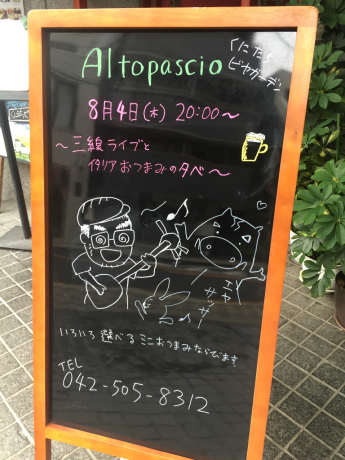 Altopascio
くにたち
ビヤガーデン
8月4日(木) 20:00～
～三線ライブと
イタリアおつまみの夕べ～
エイサー
サー
いろいろ選べるミニおつまみならびます。
TEL
042-505-8312